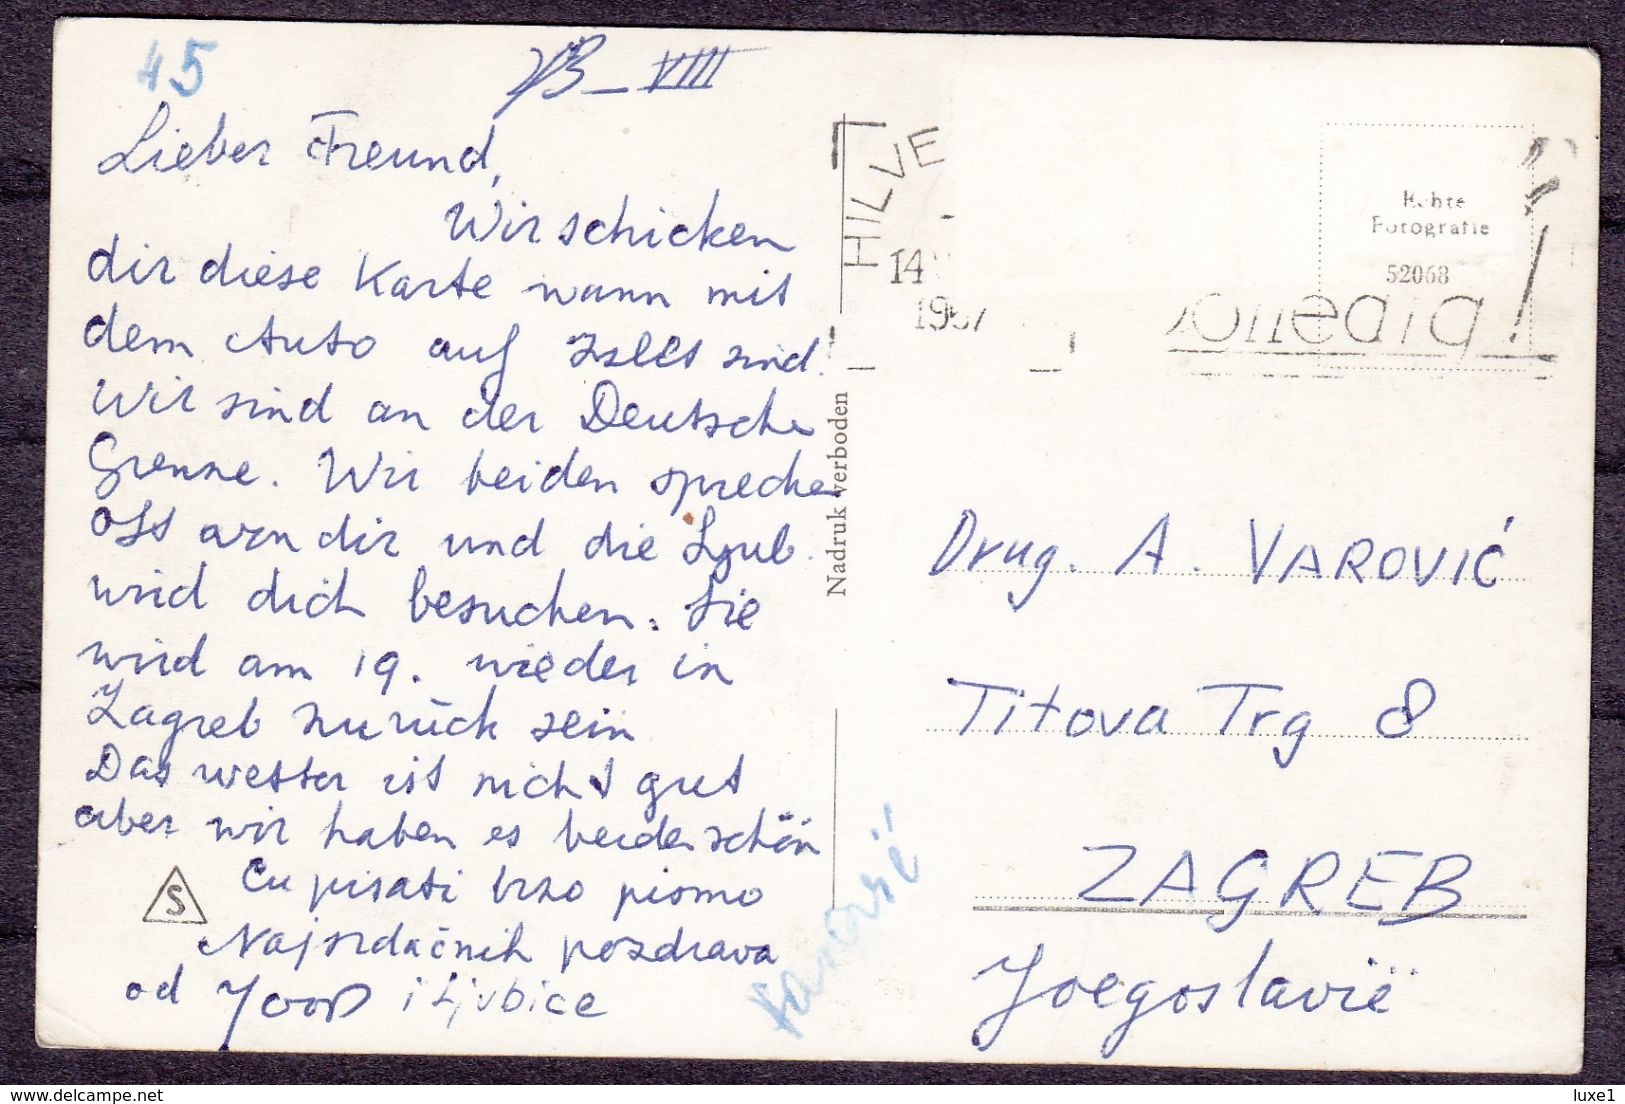 45
13 – VIII
Lieber Freund,
Wir schicken
dir diese Karte wann mit
dem Auto auf sind.
Wir sind an der Deutsche
Grenze. Wir beiden spreche
oft von dir und die Ljub.
wird dich besuchen. Sie
wird am 19. wieder in
Zagreb zurück sein
Das wetter ist nicht gut
aber wir haben es beide schön
Ću pisati brzo pismo
Najsrdačnih pozdrava
od Joop i Ljubice
S
Nadruk verboden
HILVE
14
1967
Echte
Fotografie
52068
olledig!
Drug. A. VAROVIĆ
Titova Trg 8
ZAGREB
Joegoslavië